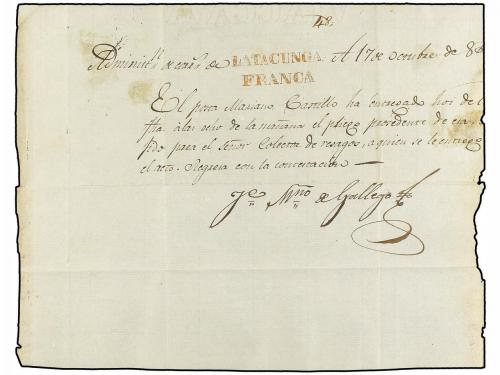 4º
Adminisᵗⁿ de corrˢ de LATACUNGA A 17 de octubre de 8
FRANCA
El posta Mariano Carrillo ha entregado hoi de
fha. à las ocho de la mañana el pliego procedente de esa
pdo para el Señor Colector de resagos, a quien se le entregó
el acto. Regresa con la contestación —
Je Mno de Gallego